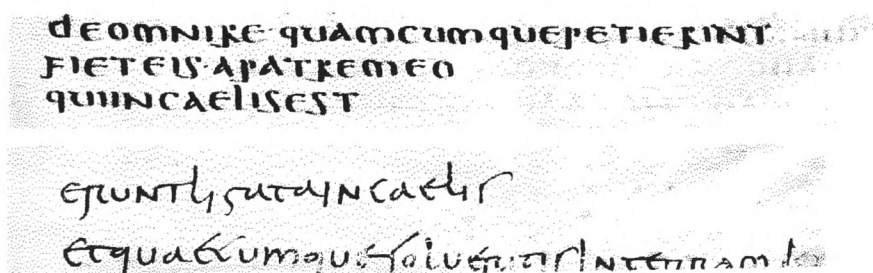 deomnire·quamcumquepetierint
fieteis·apatremeo
quiincaelisest
eruntligataincaelis
etquaecumquesolueritisinterram